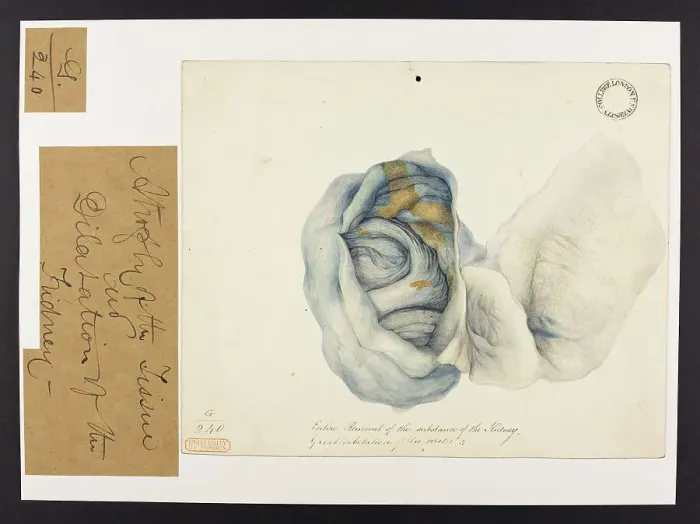 G.
240
Atrophy of the Tissue
and
Dilatation of the
Kidney —
UNIVERSITY COLLEGE LONDON
G
240
UNIVERSITY
OF LONDON
Entire Removal of the substance of the Kidney.
Great dilatation of